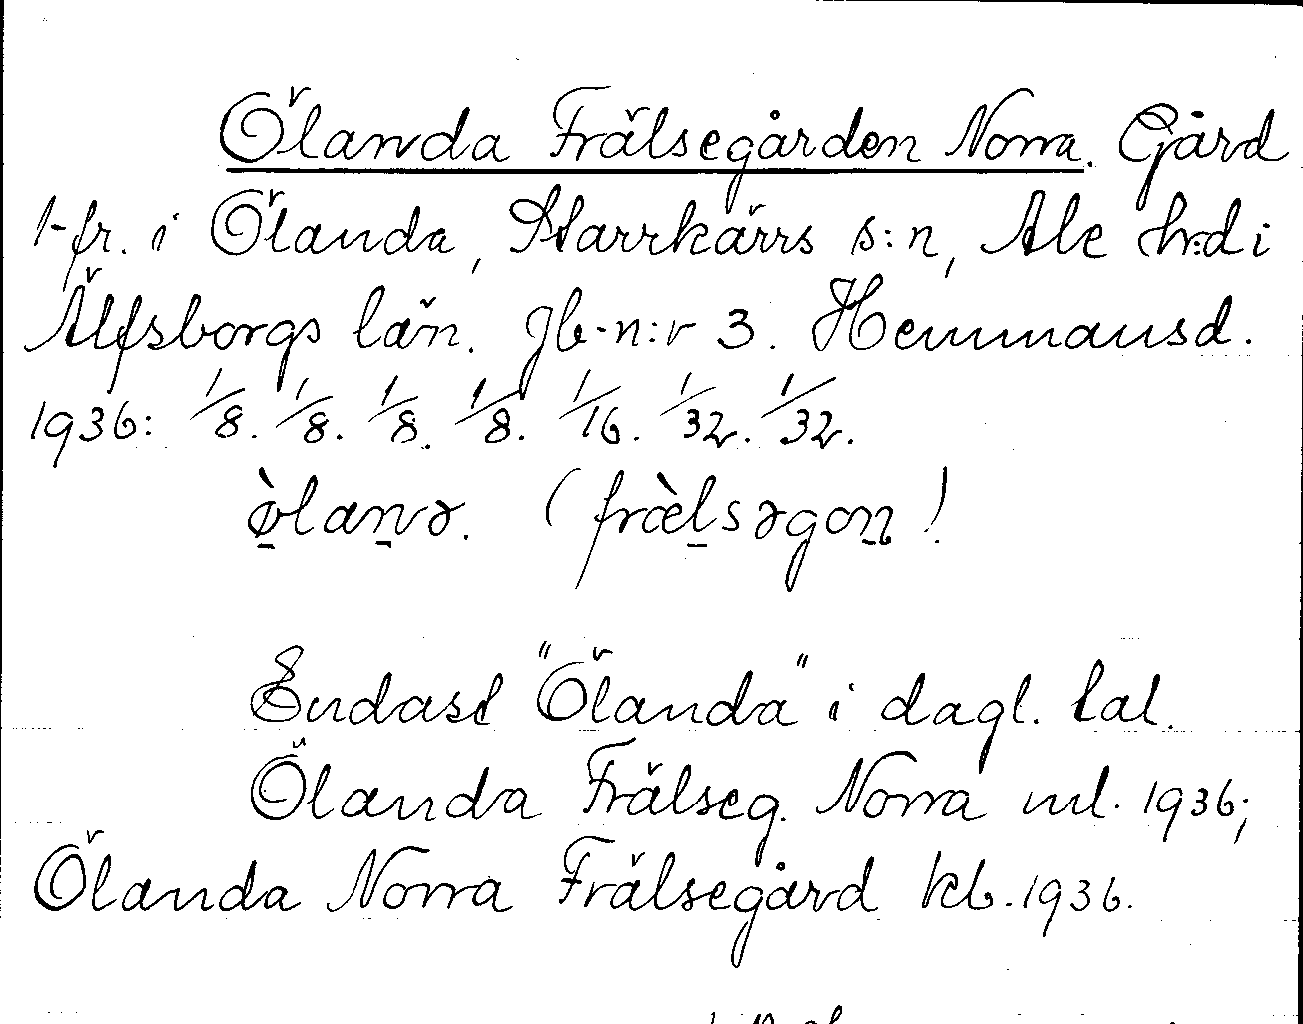 Ölanda Frälsegården Norra. Gård
1-fr. i Ölanda, Starrkärrs s:n, Ale h:d i
Älfsborgs län. Jb-n:r 3. Hemmansd.
1936: 1/8. 1/8. 1/8. 1/8. 1/16. 1/32. 1/32.
ø̠̀lan̠ə. (fræ̀l̠səgon̠!
Endast "Ölanda" i dagl. tal.
Ölanda Frälseg. Norra ml. 1936;
Ölanda Norra Frälsegård kb. 1936.